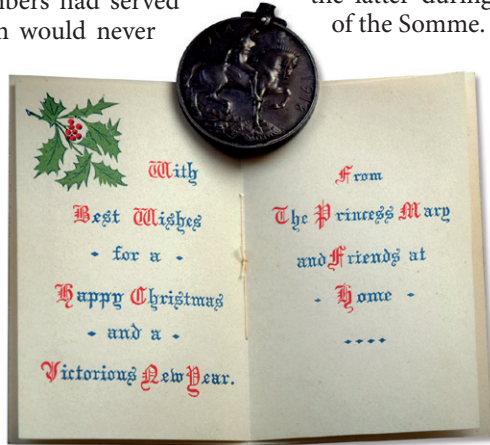 mbers had served
n would never
the latter during
of the Somme.
With
Best Wishes
for a
Happy Christmas
and a
Victorious New Year.
From
The Princess Mary
and Friends at
Home